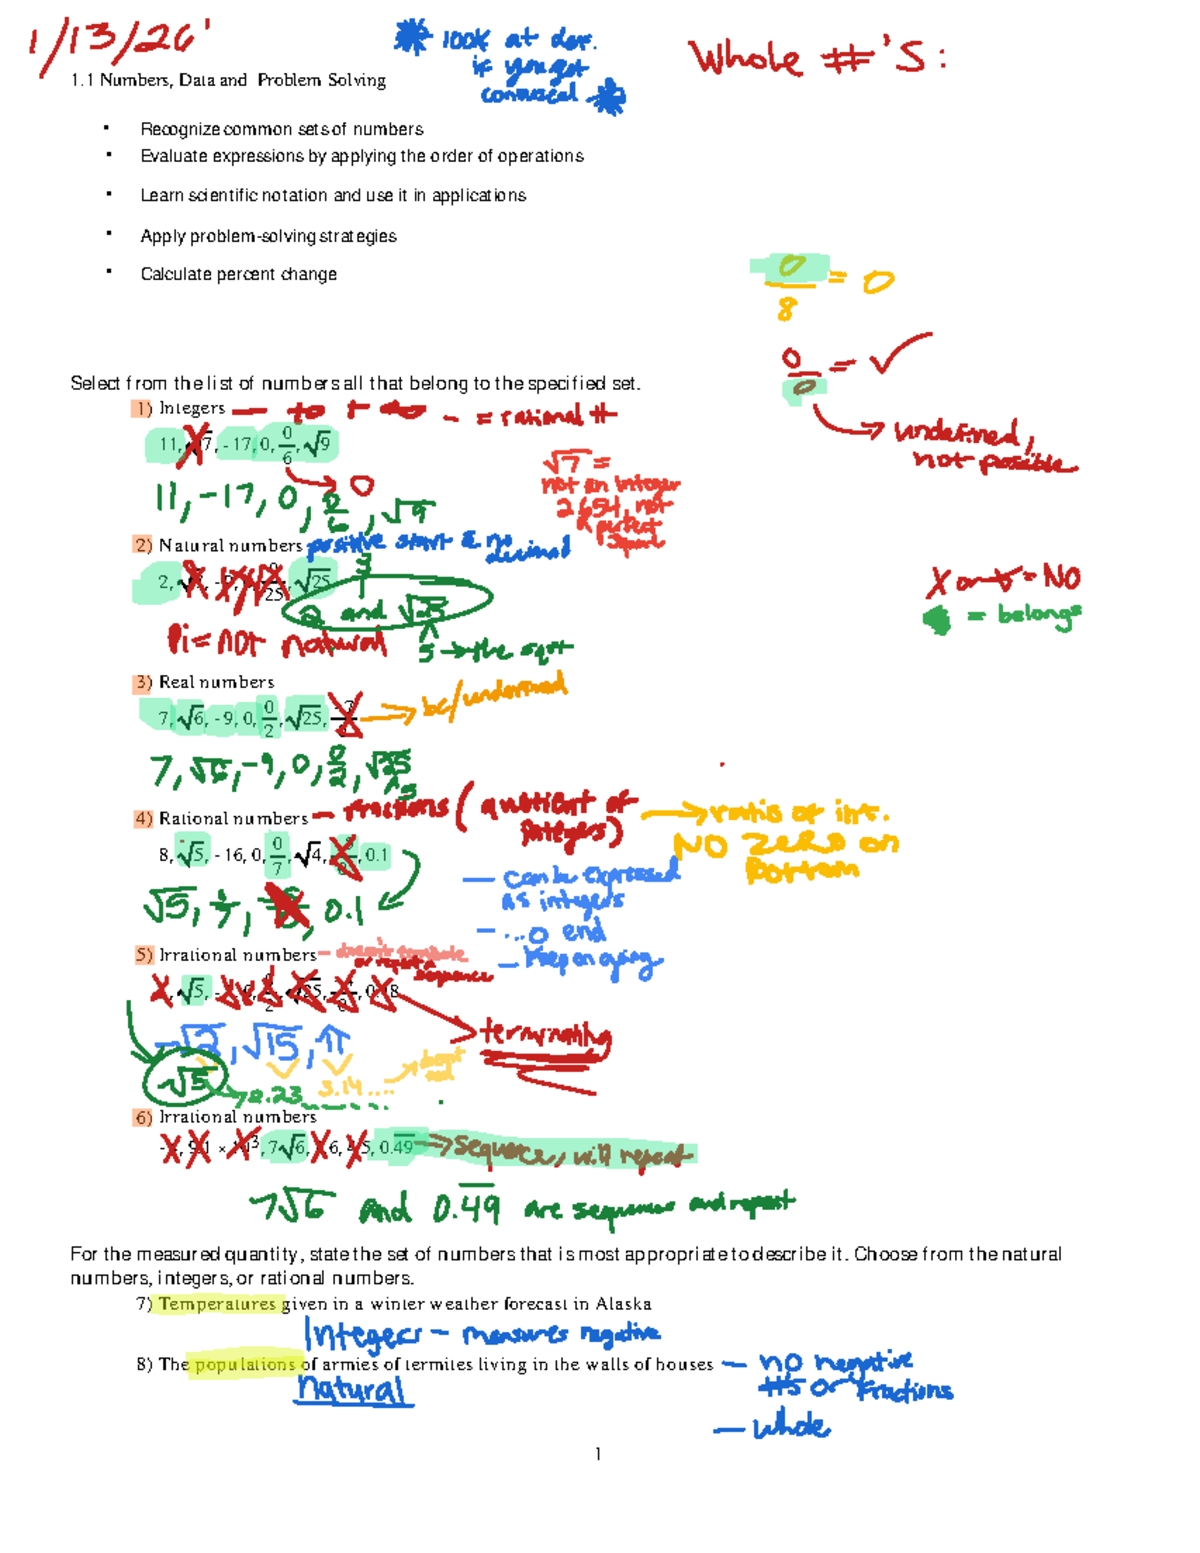 1/13/26'
look at def.
if you get
Whole #'S:
1.1 Numbers, Data and Problem Solving
▪ Recognize common sets of numbers
▪ Evaluate expressions by applying the order of operations
▪ Learn scientific notation and use it in applications
▪ Apply problem-solving strategies
▪ Calculate percent change
0/8 = 0
0/0 = ✓
undefined,
not possible
Select from the list of numbers all that belong to the specified set.
1) Integers
= rational #
11, √7, -17, 0, 0/6, √9
0
11, -17, 0, 0/6, √9
√7 =
not an integer
not
perfect
2) Natural numbers positive start & no
decimal
2, √25
2 and √25
Pi = not natural
5 → the sqrt
X = NO
= belongs
3) Real numbers
bc/undefined
7, √6, -9, 0, 0/2, √25,
7, √6, -9, 0, 0/2, √25
5
4) Rational numbers — fractions (quotient of
integers)
→ ratio of int.
NO zero on
bottom
8, √5, -16, 0, 0/7, √4, 0.1
— can be expressed
as integers
√5, 0.1
— ...0 end
— keep on going
5) Irrational numbers
sequence
√5
terminating
√2, √15, π
√5
2.23
3.14....
6) Irrational numbers
7√6, 0.49 → sequence, will repeat
7√6 and 0.49 are sequences and repeat
For the measured quantity, state the set of numbers that is most appropriate to describe it. Choose from the natural
numbers, integers, or rational numbers.
7) Temperatures given in a winter weather forecast in Alaska
Integers - measures negative
8) The populations of armies of termites living in the walls of houses — no negative
#s or fractions
natural
— whole
1